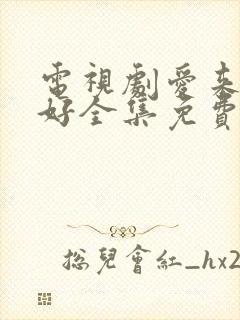 電視劇愛來
好全集免費
總兒會紅_hx2